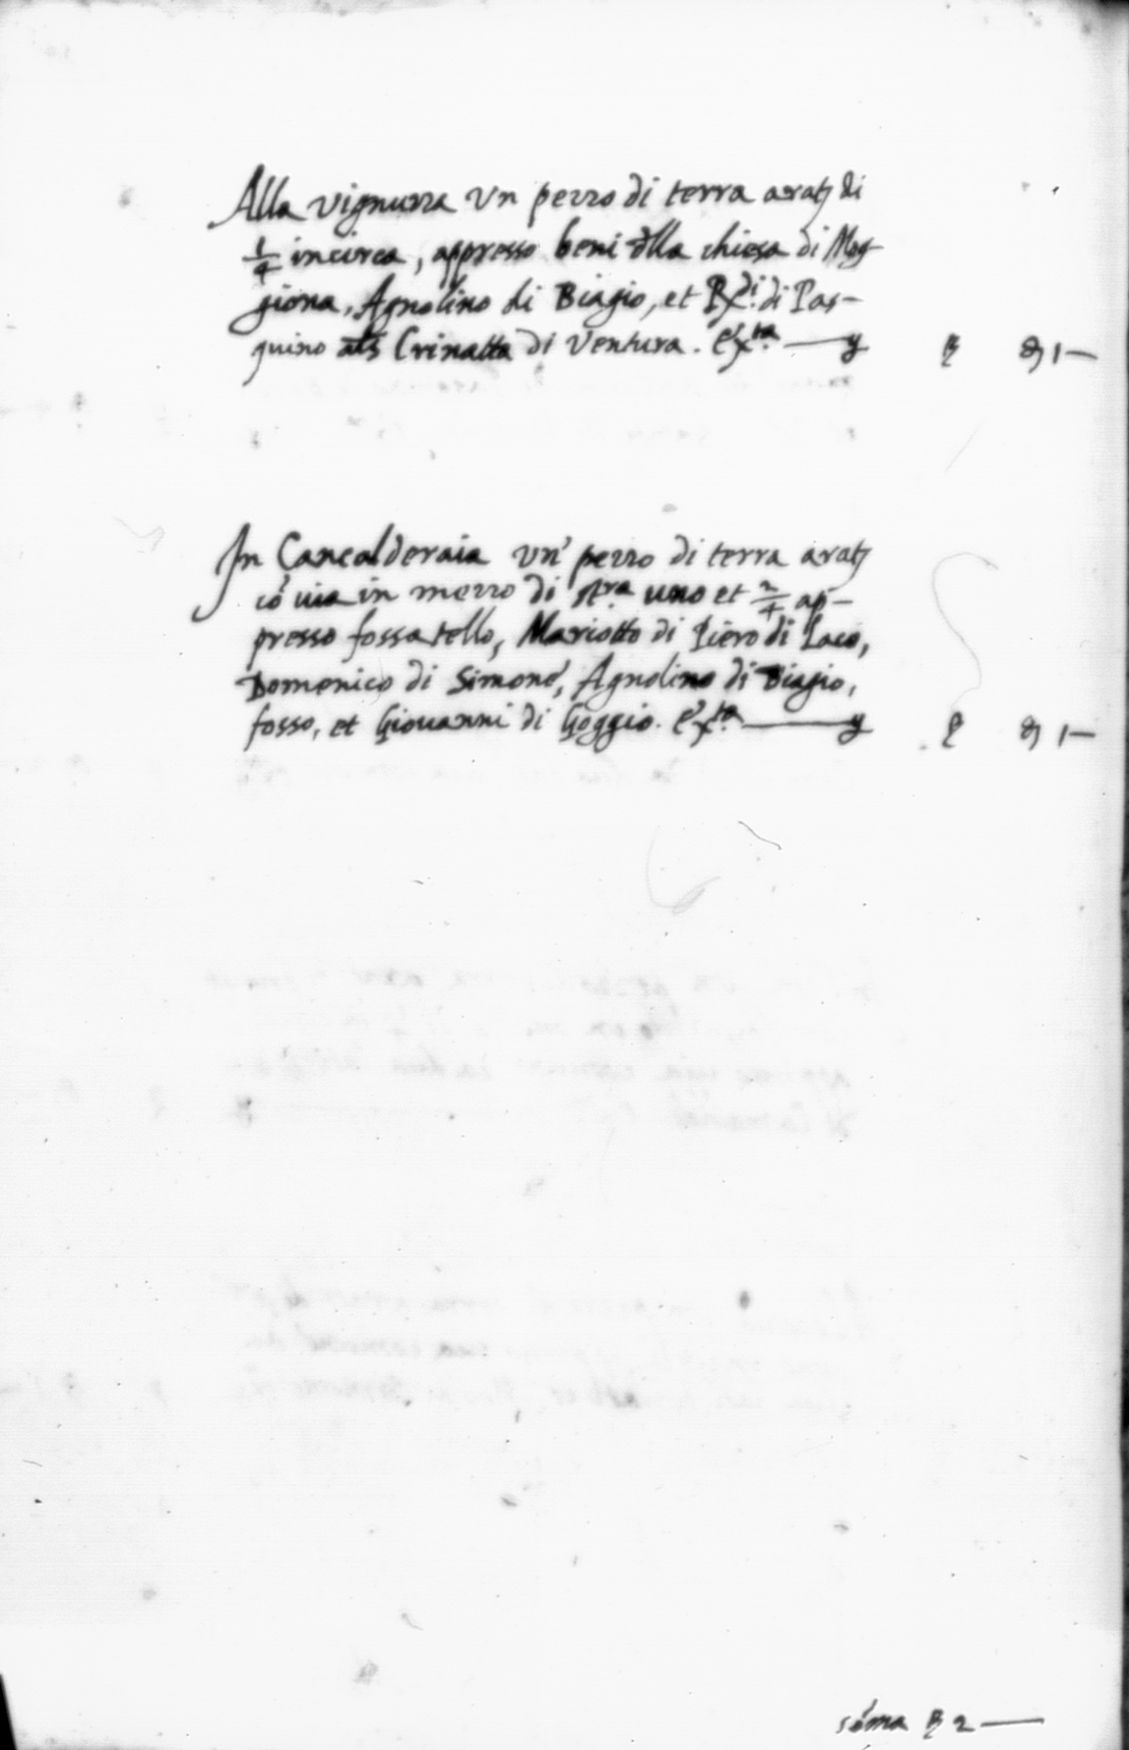 Alla vignuzza un pezzo di terra arat. di
1/4 incirca, appresso beni dlla chiesa di Mag-
giona, Agnolino di Biagio, et Rdi. di Pas-
quino als Crinatta di Ventura. exta.
1 —
In Cancalderaia un' pezzo di terra arat.
cõ via in mezzo di stra uno et 2/4 ap-
presso fossatello, Mariotto di Piero di Laco,
Domenico di Simone, Agnolino di Biagio,
fosso, et Giovanni di Goggio. exta.
1 —
sõma 2 —